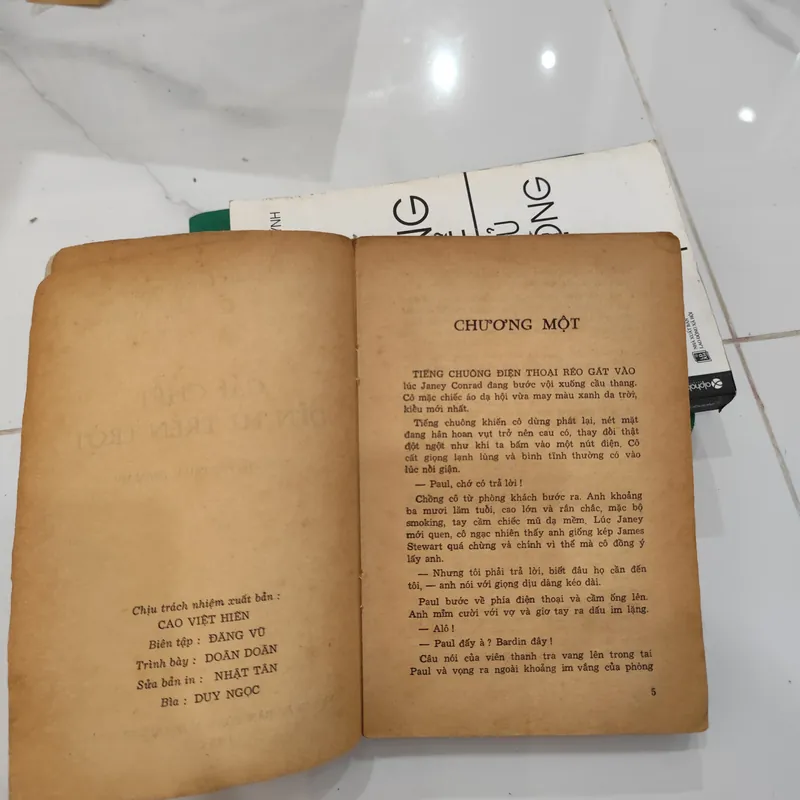 Chịu trách nhiệm xuất bản :
CAO VIỆT HIỀN
Biên tập : ĐĂNG VŨ
Trình bày : DOÃN DOÃN
Sửa bản in : NHẬT TÂN
Bìa : DUY NGỌC
CHƯƠNG MỘT
TIẾNG CHUÔNG ĐIỆN THOẠI RÉO GẮT VÀO
lúc Janey Conrad đang bước vội xuống cầu thang.
Cô mặc chiếc áo dạ hội vừa may màu xanh da trời,
kiểu mới nhất.
Tiếng chuông khiến cô dừng phắt lại, nét mặt
đang hân hoan vụt trở nên cau có, thay đổi thật
đột ngột như khi ta bấm vào một nút điện. Cô
cất giọng lạnh lùng và bình tĩnh thường có vào
lúc nổi giận.
— Paul, chớ có trả lời !
Chồng cô từ phòng khách bước ra. Anh khoảng
ba mươi lăm tuổi, cao lớn và rắn chắc, mặc bộ
smoking, tay cầm chiếc mũ dạ mềm. Lúc Janey
mới quen, cô ngạc nhiên thấy anh giống kép James
Stewart quá chừng và chính vì thế mà cô đồng ý
lấy anh.
— Nhưng tôi phải trả lời, biết đâu họ cần đến
tôi, — anh nói với giọng dịu dàng kéo dài.
Paul bước về phía điện thoại và cầm ống lên.
Anh mỉm cười với vợ và giơ tay ra dấu im lặng.
— Alô !
— Paul đấy à ? Bardin đây !
Câu nói của viên thanh tra vang lên trong tai
Paul và vọng ra ngoài khoảng im vắng của phòng
5